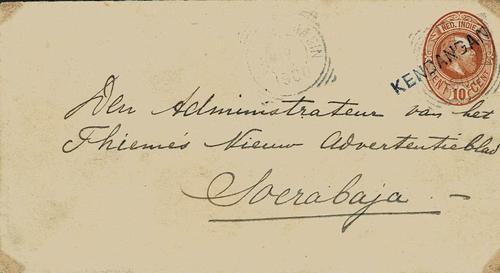 NED. INDIE
KENDANGAN
10 CENT
Den Administrateur van het
Thieme's Nieuw Advertentieblad
Soerabaja